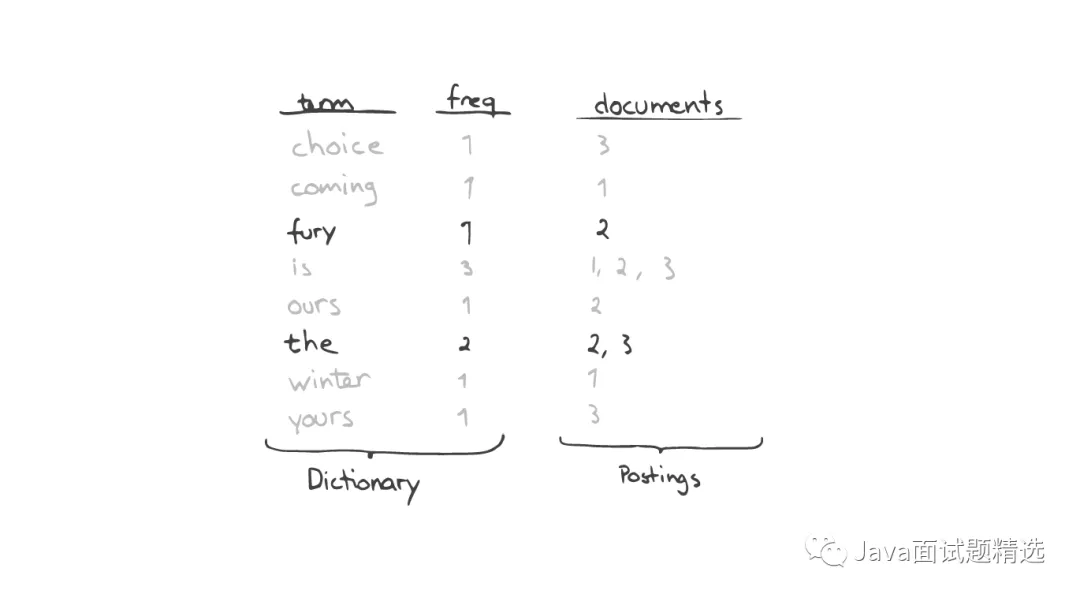 term freq documents
choice 1 3
coming 1 1
fury 1 2
is 3 1, 2, 3
ours 1 2
the 2 2, 3
winter 1 1
yours 1 3
Dictionary Postings
Java面试题精选